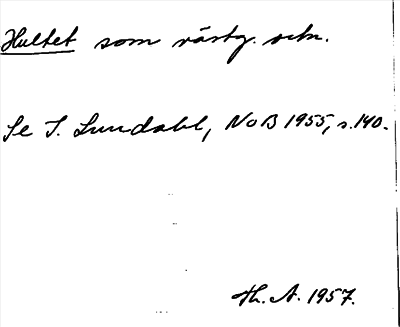 Hultet som västg. ortn.
Se I. Lundahl, NoB 1955, s. 140.
Th. A. 1957.